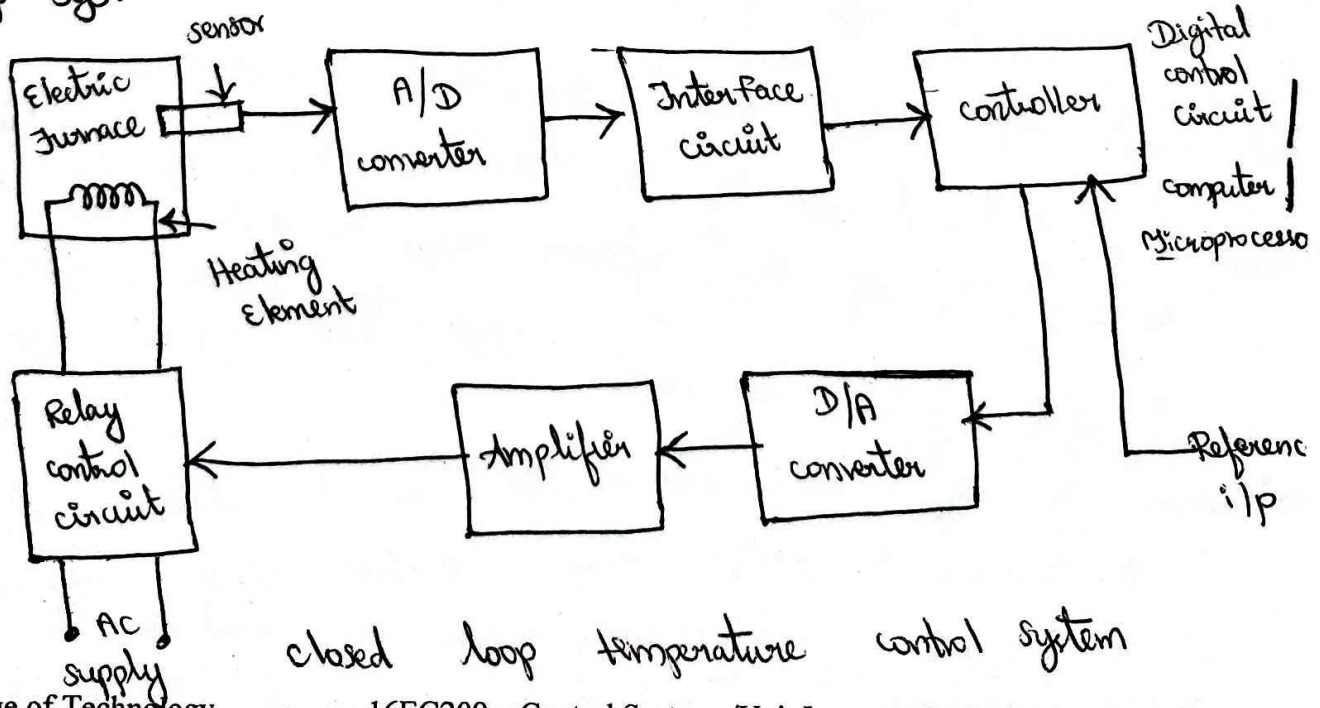 sensor
Electric
Furnace
A/D
converter
Interface
circuit
controller
Digital
control
circuit /
computer /
Microprocesso
Heating
Element
Relay
control
circuit
Amplifier
D/A
converter
Referenc
i/p
AC
supply
closed loop temperature control system
ge of Technology